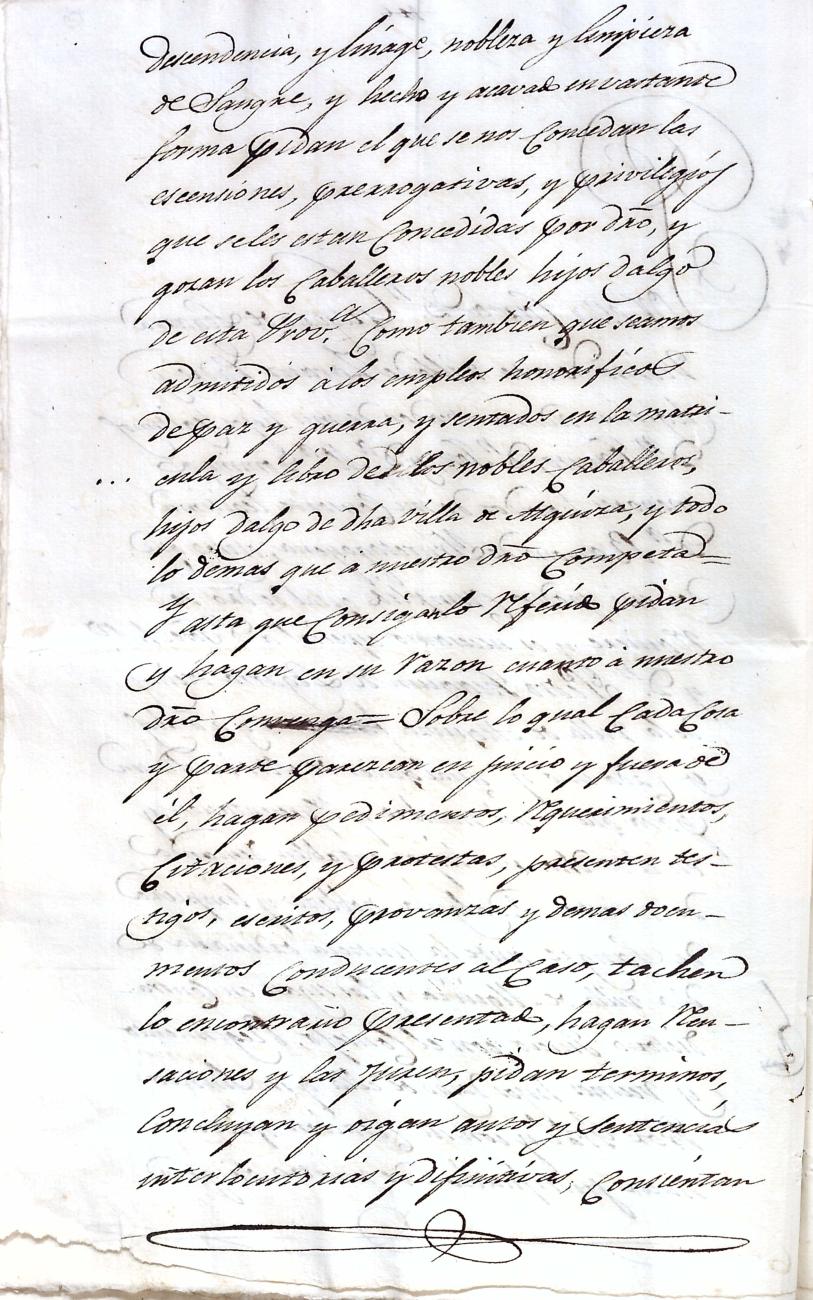 descendencia, y linage, nobleza y limpieza
de Sangre, y hecho y acavado en vastante
forma pidan el que se nos Concedan las
escensiones, prerrogativas, y privilegios
que seles estan Concedidas por dro, y
gozan los Caballeros nobles hijos dalgo
de esta Prov.a Como tambien que seamos
admitidos à los empleos honorificos
de paz y guerra, y sentados en la matri-
cula y libro de los nobles Caballeros,
hijos dalgo de dha villa de Algùeza, y todo
lo demas que à nuestro dro Competa=
Y asta que Consigan lo Referido pidan
y hagan en su razon cuanto à nuestro
dro Convenga= Sobre lo qual Cada Cosa
y parte parezcan en juicio y fuera de
èl, hagan pedimentos, Requerimientos,
Citaciones, y protestas, presenten tes-
tigos, escritos, provanzas y demas docu-
mentos Conducentes al Caso, tachen
lo encontrario presentado, hagan Recu-
saciones y las Juren, pidan terminos,
Concluyan y oigan autos y Sentencias
interlocutorias y difinitivas, Consientan